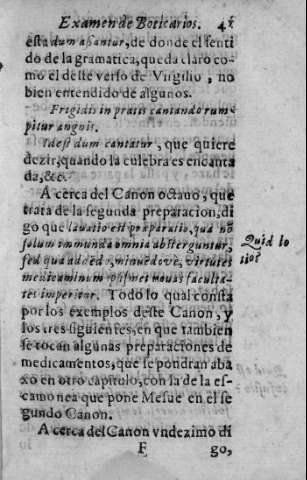 Examen de Boticarios. 41
esta dum assantur, de donde el senti
do de la gramatica, queda claro co-
mo el deste verso de Virgilio, no
bien entendido de algunos.
Frigidis in pratis cantando rum-
pitur anguis.
Idest dum cantatur, que quiere
dezir, quando la culebra es encanta
da, &c.
A cerca del Canon octauo, que
trata de la segunda preparacion, di
go que lauatio est preparatio, qua no
solum immunda omnia absterguntur,
sed qua addẽdo, minuẽdove, virtutes
medicaminum ipsis met nouas faculta-
tes impertur. Todo lo qual consta
por los exemplos deste Canon, y
los tres siguientes, en que tambien
se tocan algunas preparaciones de
medicamentos, que se pondran aba
xo en otro capitulo, con la de la es-
camonea que pone Mesue en el se
gundo Canon.
A cerca del Canon vndezimo di
F go,
Quid lo
tio?